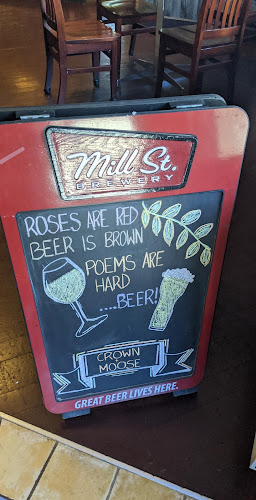 Mill St.
BREWERY
ROSES ARE RED
BEER IS BROWN
POEMS ARE
HARD
....BEER!
CROWN
+
MOOSE
GREAT BEER LIVES HERE.